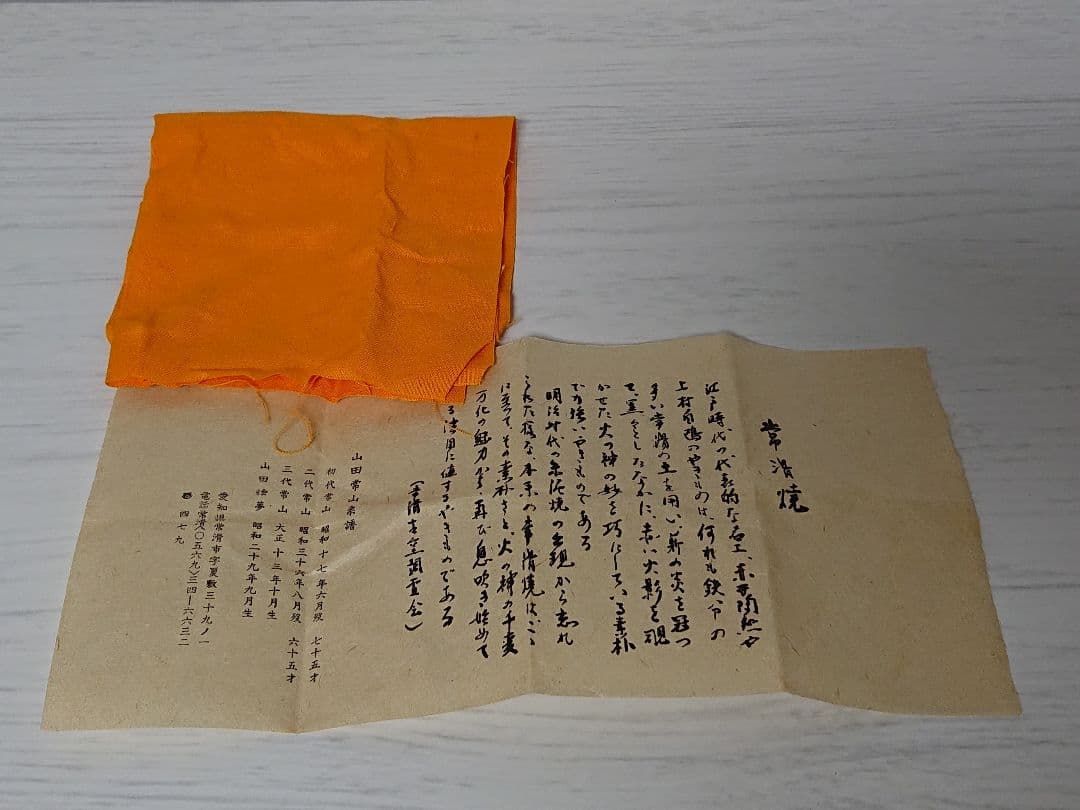 常滑焼
江戸時代の代表的な名工、赤井陶然や
上村白鴎のやきものは、何れも鉄分の
多い常滑の土を用い、薪の炎を冠っ
て、黒々としたなかに、赤い火影を覗
かせた火の神の妙を巧にしている素朴
で力強いやきものである
明治時代の朱泥焼の出現から忘れ
られた様な、本来の常滑焼は、ここ
に至って、その素朴さと、火の神の千変
万化の魅力が、再び息吹き始めて
る注目に値するやきものである
山田常山系譜
初代常山 昭和十七年六月歿 七十五才
二代常山 昭和三十六年八月歿 六十五才
三代常山 大正十三年十月生
山田絵夢 昭和二十九年九月生
愛知県常滑市字夏敷三十九ノ一
電話常滑〈〇五六九〉三四―六六三二
四七九